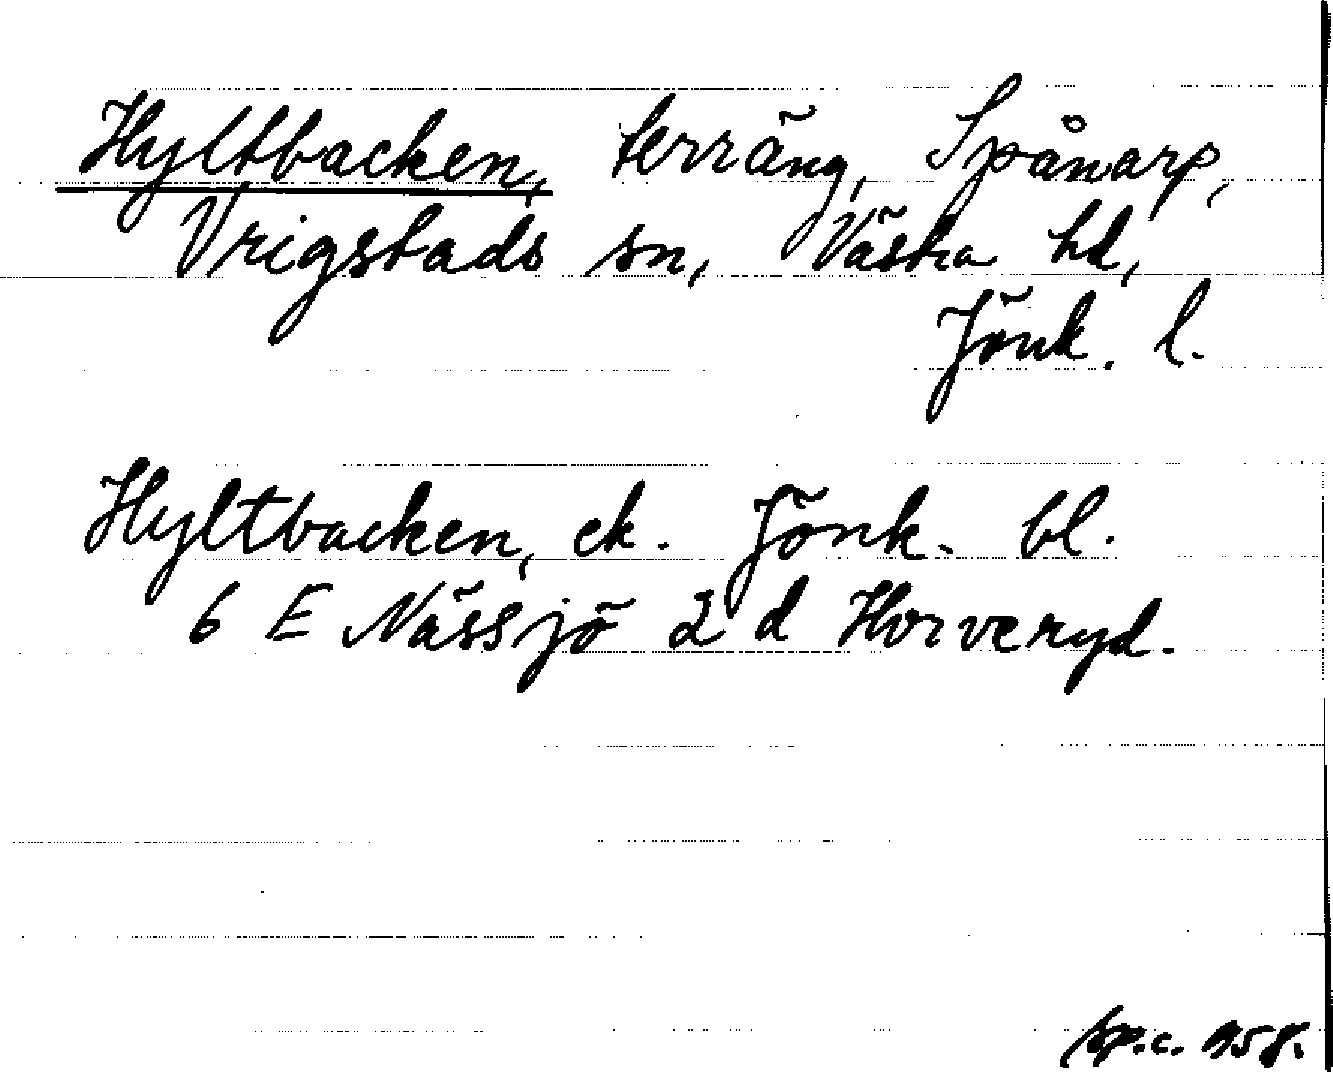 Hyltbacken, terräng, Spånarp,
Vrigstads sn, Västra hd,
Jönk. l.
Hyltbacken, ek. Jönk. bl.
6 E Nässjö 2 d Horveryd.
sp.c. 958.